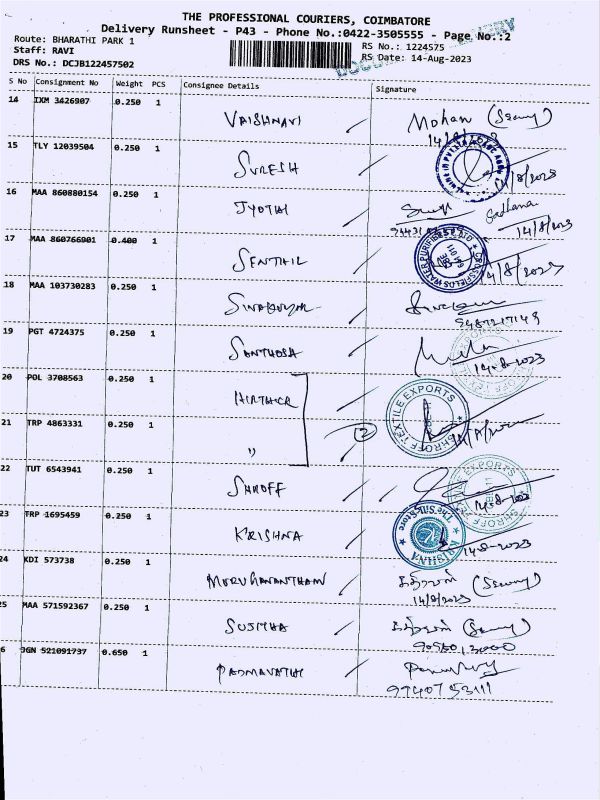 THE PROFESSIONAL COURIERS, COIMBATORE
Delivery Runsheet - P43 - Phone No.:0422-3505555 - Page No.:2
Route: BHARATHI PARK 1
RS No.: 1224575
Staff: RAVI
RS Date: 14-Aug-2023
DRS No.: DCJB122457502
S No Consignment No Weight PCS Consignee Details Signature
14 IXM 3426907 0.250 1 VAISHNAVI Mohan
14/8/2023
15 TLY 12039504 0.250 1 SURESH
14/8/2023
16 MAA 860880154 0.250 1 JYOTHI Sadhana
14/8/2023
17 MAA 860766901 0.400 1 SENTHIL
CROSSFIELDS WATER PURIFIERS
14/8/2023
18 MAA 103730283 0.250 1 SIVAKUMAR
19 PGT 4724375 0.250 1 SANTHOSH
14-8-2023
20 POL 3708563 0.250 1
SHROFF TEXTILE EXPORTS
21 TRP 4863331 0.250 1 " 2
22 TUT 6543941 0.250 1 SHROFF
SHROFF TEXTILE EXPORTS
14-8-2023
23 TRP 1695459 0.250 1 KRISHNA
KRISHNA
The U.S. Store
14-8-2023
24 KDI 573738 0.250 1 MURUGANANTHAM
14/8/2023
25 MAA 571592367 0.250 1 SUSITHA
6 JGN 521091737 0.650 1 PADMAVATHI
99407 53111